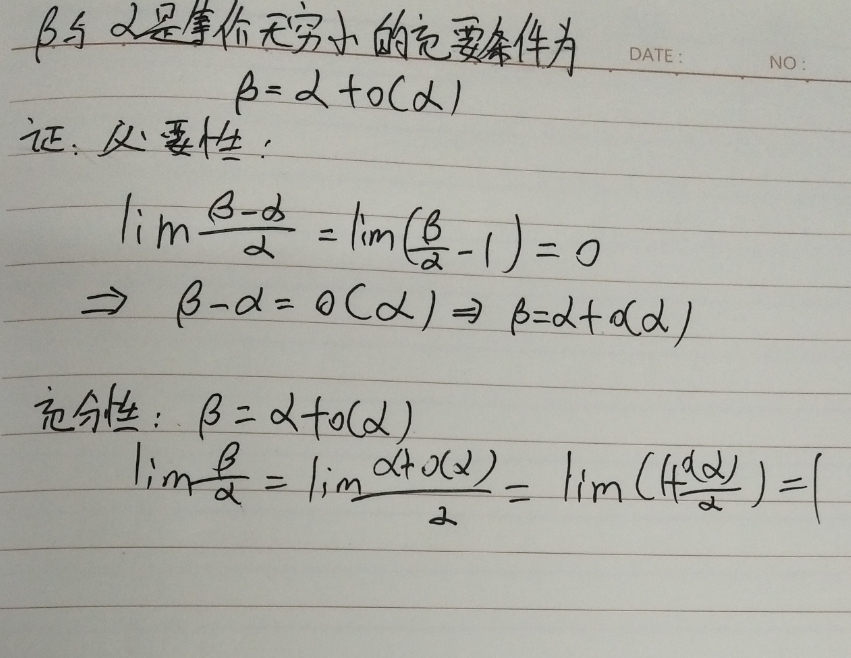 β与α是等价无穷小的充要条件为
DATE: NO:
β=α+o(α)
证:必要性:
lim (β-α)/α = lim(β/α - 1) = 0
⇒ β-α=o(α) ⇒ β=α+o(α)
充分性: β=α+o(α)
lim β/α = lim (α+o(α))/α = lim (1+o(α)/α) = 1